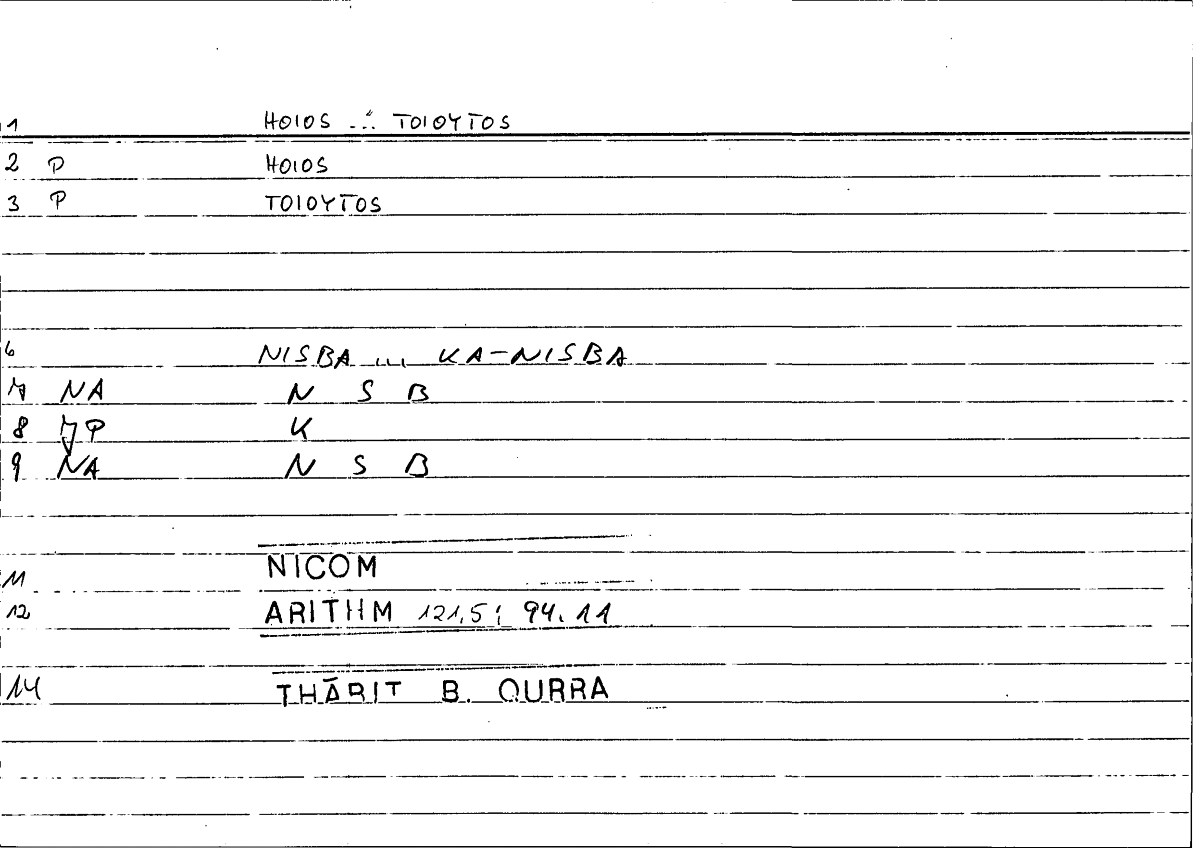 1 HOIOS ... TOIOYTOS
2 P HOIOS
3 P TOIOYTOS
6 NISBA ... KA-NISBA
7 NA N S B
8 P K
9 NA N S B
11 NICOM
12 ARITHM 121,5; 94.11
14 THĀBIT B. QURRA